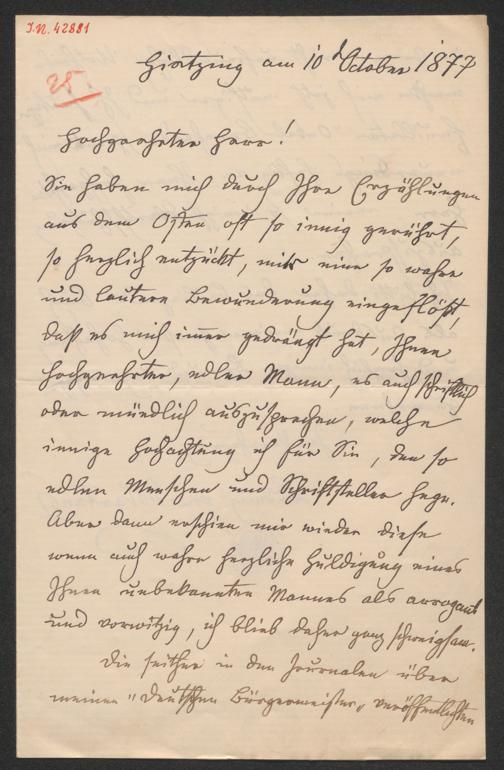 I.N. 42881
25.
Hietzing am 10 October 1877
Hochgeehrter Herr!
Sie haben mich durch Ihre Erzählungen
aus dem Osten oft so innig gerührt,
so herzlich entzückt, mir eine so wahre
und lautere Bewunderung eingeflößt,
daß es mich immer gedrängt hat, Ihnen
hochgeehrter, edler Mann, es auch schriftlich
oder mündlich auszusprechen, welche
innige Hochachtung ich für Sie, den so
edlen Menschen und Schriftsteller hege.
Aber dann erschien mir wieder diese
wenn auch wahre herzliche Huldigung eines
Ihnen unbekannten Mannes als arrogant
und vorwitzig, ich blieb daher ganz schweigsam.
Die seither in den Journalen über
meinen "Deutschen Bürgermeister" veröffentlichten